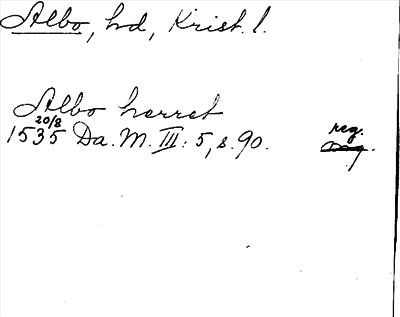 Albo, hd, Krist. l.
Albo herret
20/8
1535 Da. M. III. 5, s. 90.
reg.